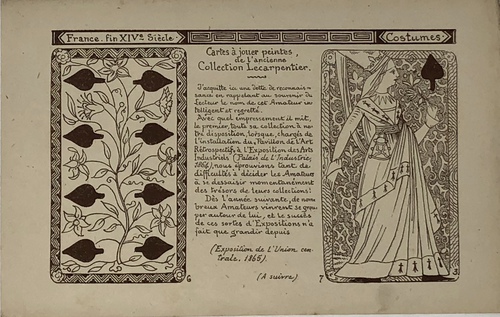 France. fin XIVe Siècle
Costumes
Cartes à jouer peintes,
de l'ancienne
Collection Lecarpentier.
J'acquitte ici une dette de reconnais-
sance en rappelant au souvenir du
lecteur le nom de cet Amateur in-
telligent et regretté.
Avec quel empressement il mit,
le premier, toute sa collection à no-
tre disposition, lorsque, chargés de
l'installation du Pavillon de l'Art
Rétrospectif, à l'Exposition des Arts
Industriels (Palais de l'Industrie,
nous éprouvions tant de
difficultés à décider les Amateurs
à se dessaisir momentanément
des trésors de leurs collections!
Dès l'année suivante, de nom-
breux Amateurs vinrent se grou-
per autour de lui, et le succès
de ces sortes d'Expositions n'a
fait que grandir depuis
(Exposition de l'Union cen-
trale, 1865)
(A suivre)
6
7